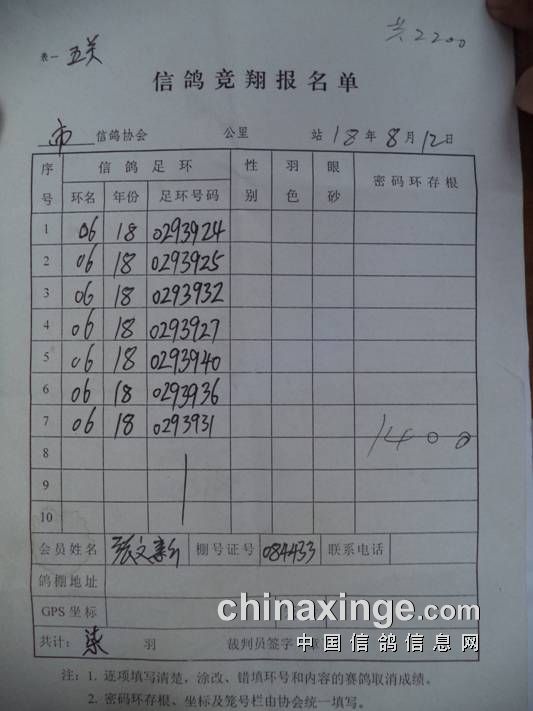 共2200
表一 五关
信鸽竞翔报名单
市 信鸽协会 公里 站 18年8月12日
序号 信鸽足环 性别 羽色 眼砂 密码环存根
环名 年份 足环号码
1 06 18 0293924
2 06 18 0293925
3 06 18 0293932
4 06 18 0293927
5 06 18 0293940
6 06 18 0293936
7 06 18 0293931
1400
8
9
10
会员姓名 张文新 棚号证号 084433 联系电话
鸽棚地址
GPS坐标
chinaxinge.com
中国信鸽信息网
共计: 柒 羽 裁判员签字 章
注: 1. 逐项填写清楚，涂改、错填环号和内容的赛鸽取消成绩。
2. 密码环存根、坐标及笼号栏由协会统一填写。